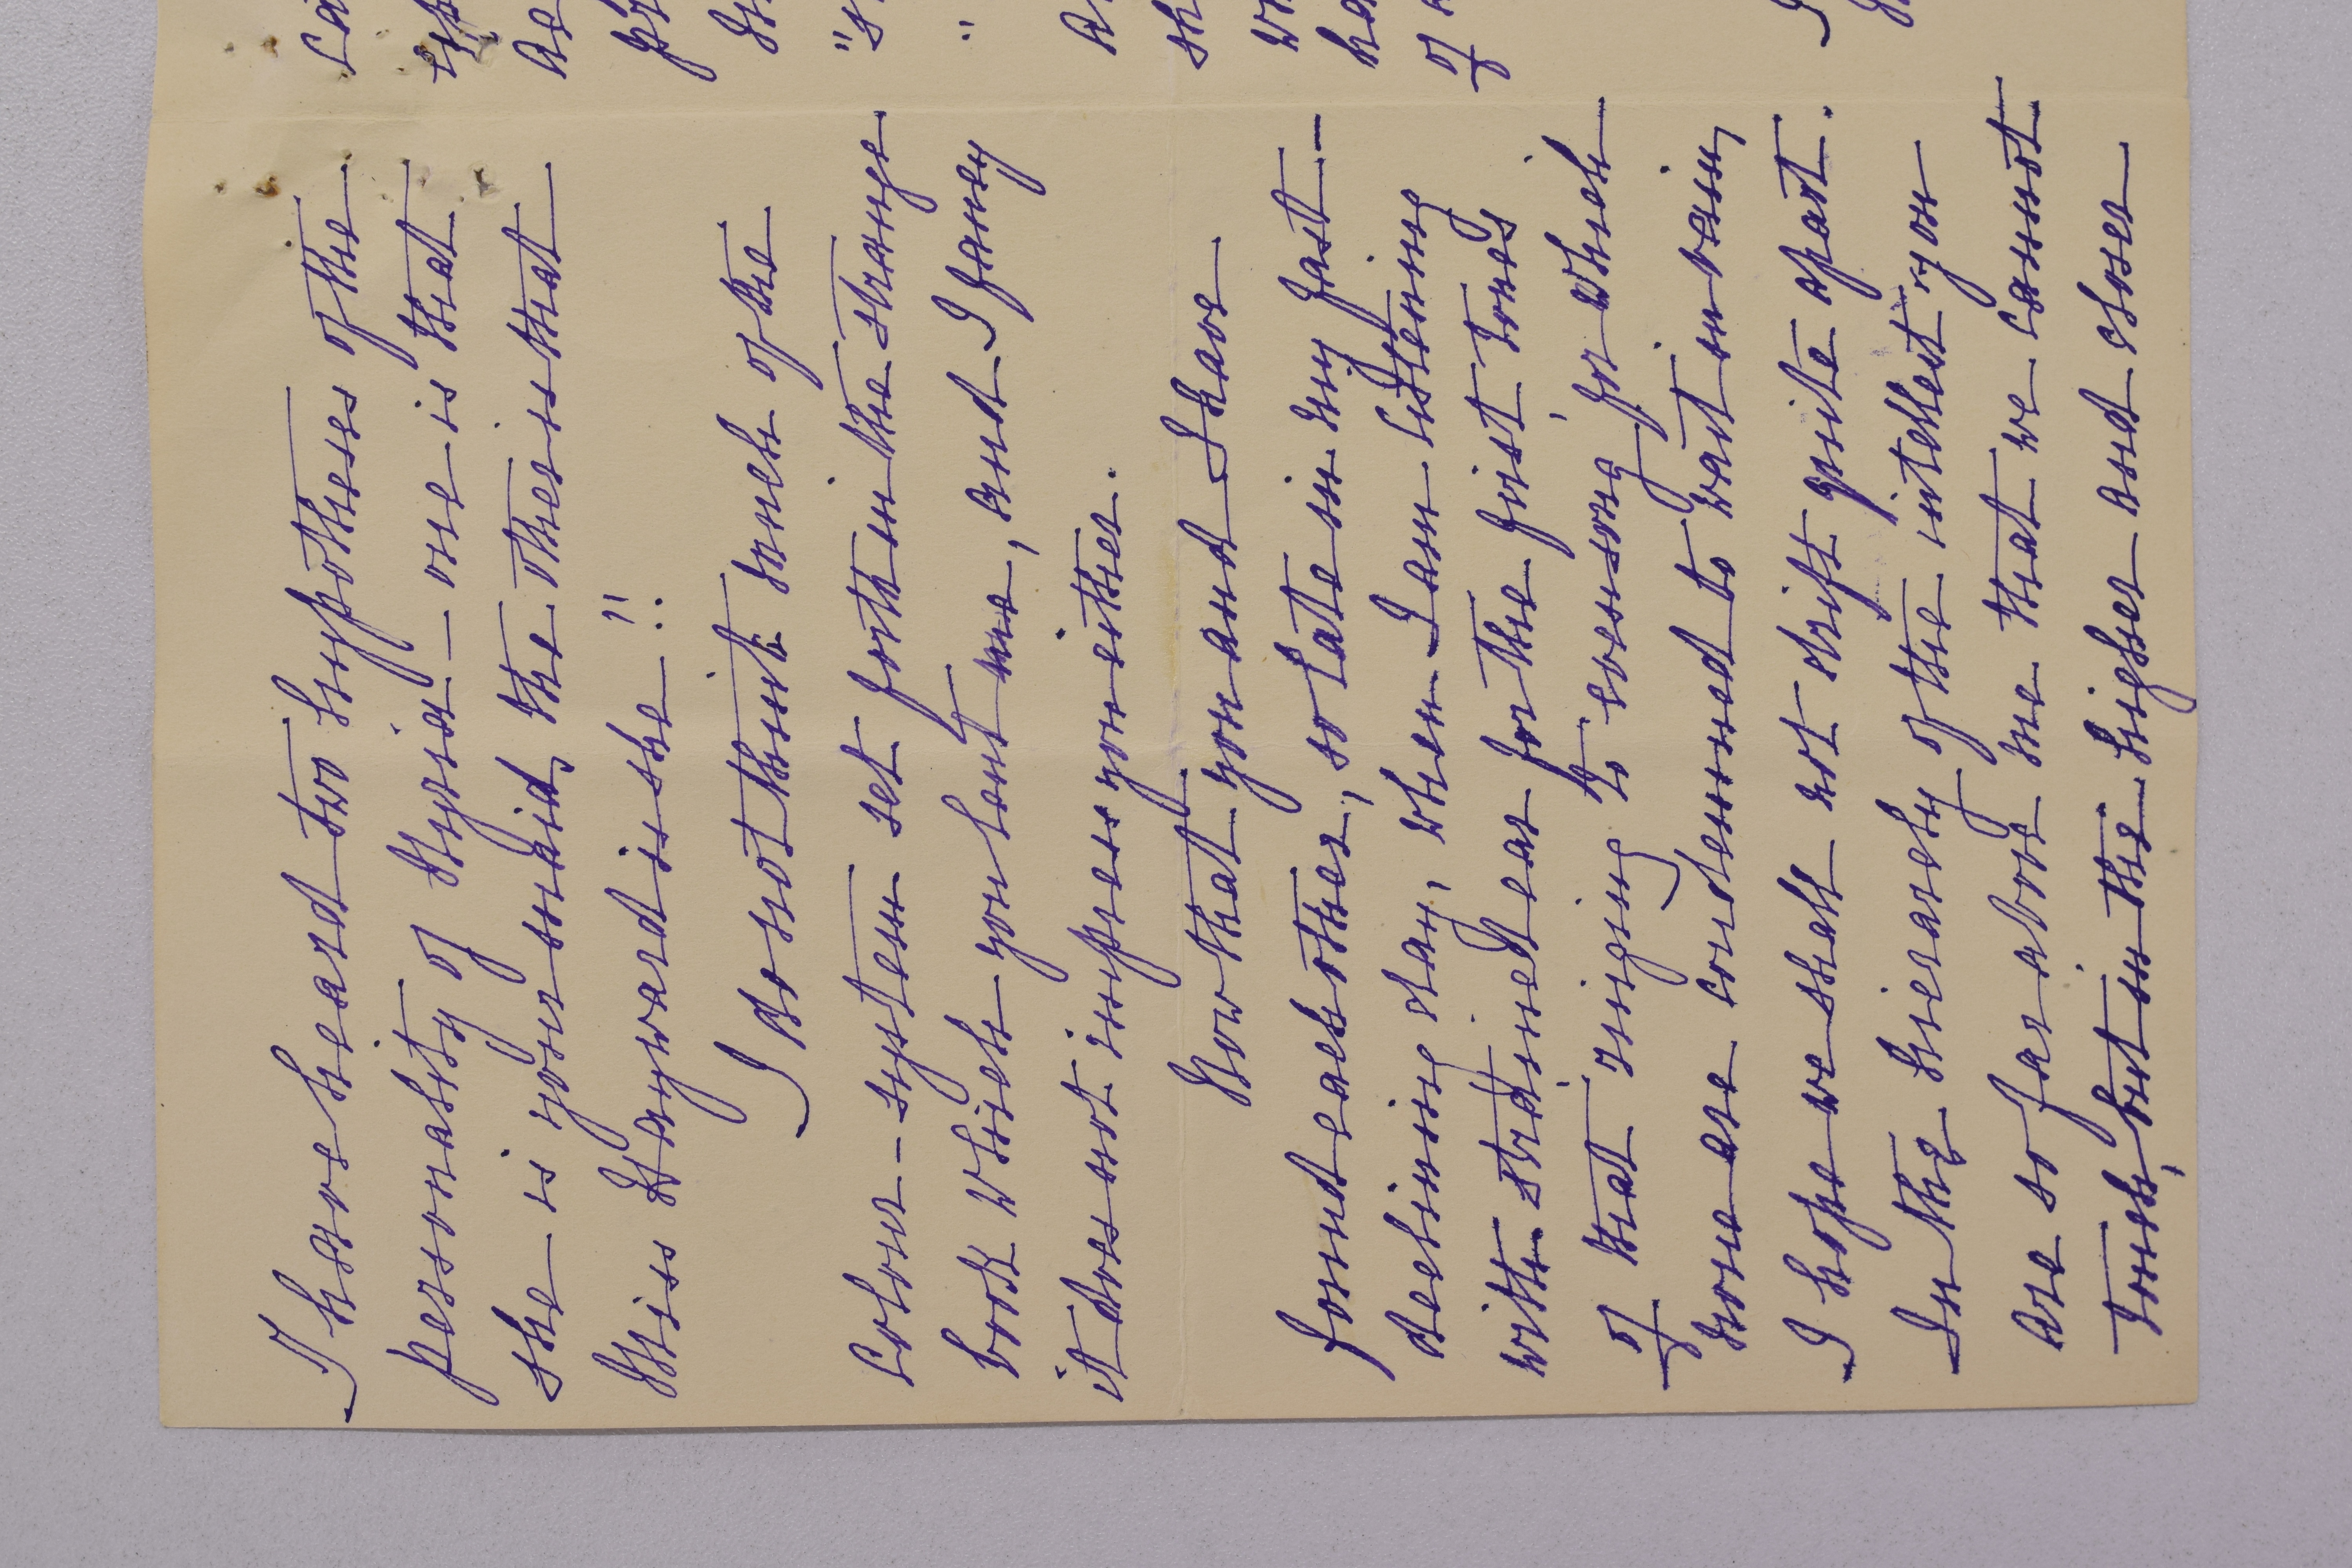 I have heard two hypotheses of the
personality of Myria – one is that
she is your maid, the other is that
Miss Hayward is she!!
I do not think much of the
colour-system set forth in the strange
book which you lent me, and I fancy
it does not impress you either.
Now that you and I have
found each other, so late in my fast-
declining day, when I am listening
with strained ear for the first tones
of that ringing to evensong for which
none are condemned to wait in vain,
I hope we shall not drift quite apart.
In the hierarchy of the intellect you
are so far above me that we cannot
touch, but in the higher and closer